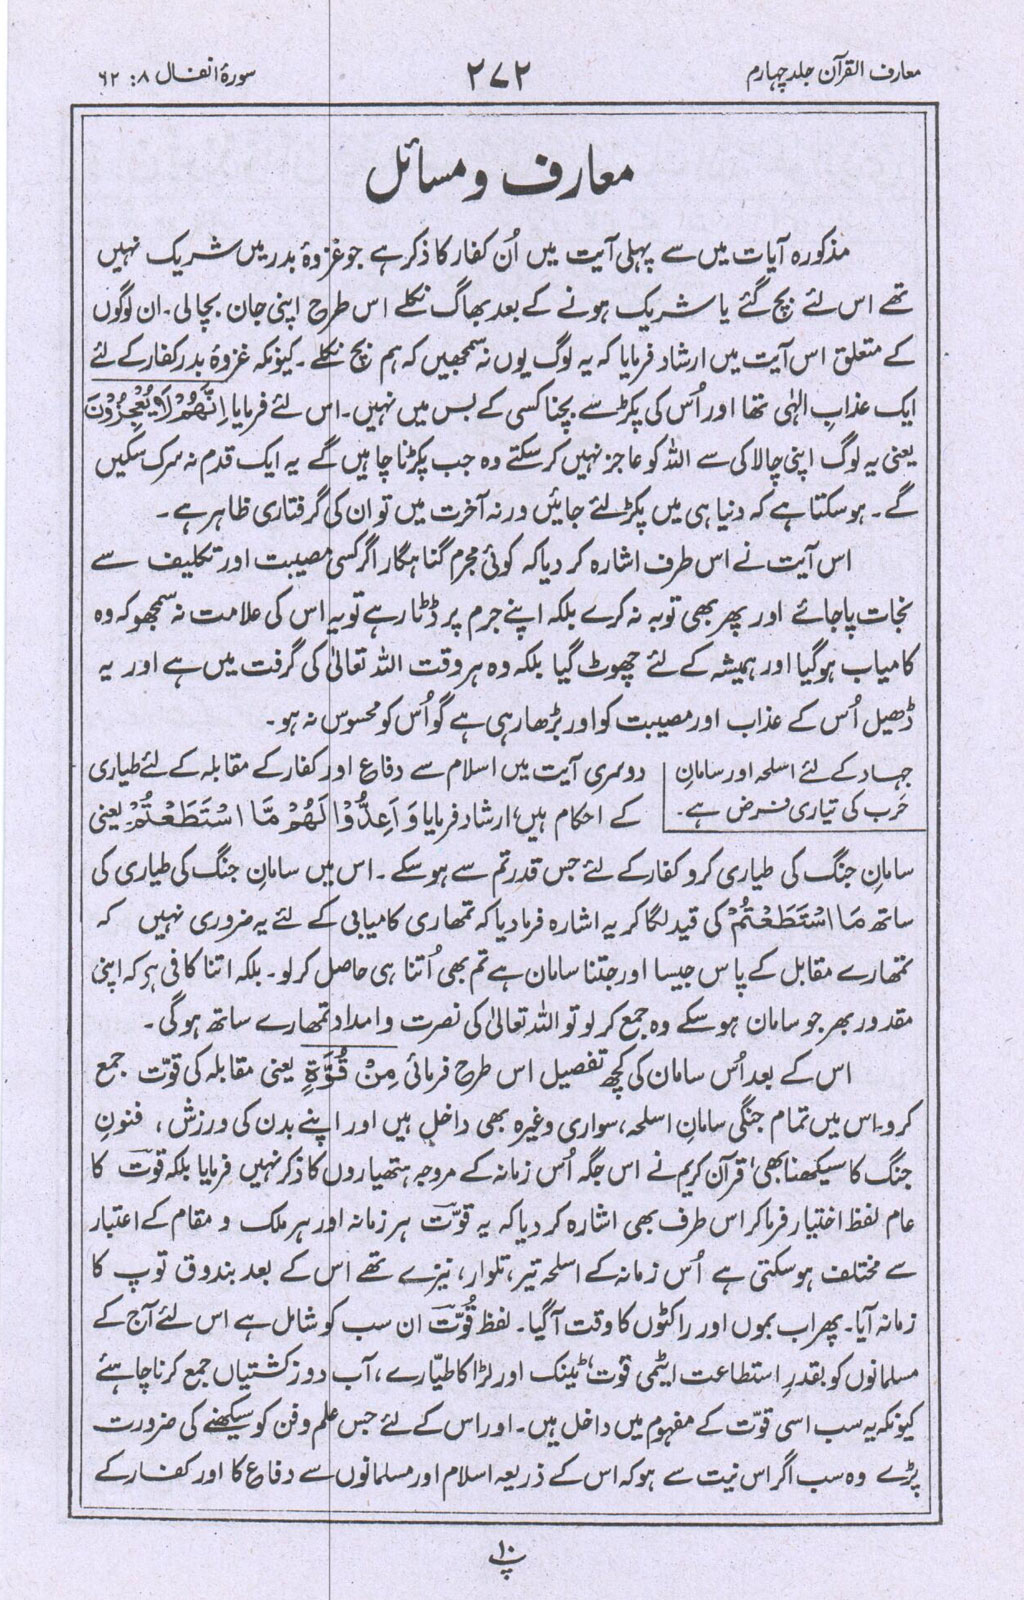 معارف القرآن جلد چہارم
۲۷۲
سورۂ انفال ۸ : ۶۲
معارف و مسائل
مذکورہ آیات میں سے پہلی آیت میں اُن کفار کا ذکر ہے جو غزوۂ بدر میں شریک نہیں
تھے اس لئے بچ گئے یا شریک ہونے کے بعد بھاگ نکلے اس طرح اپنی جان بچالی۔ ان لوگوں
کے متعلق اس آیت میں ارشاد فرمایا کہ یہ لوگ یوں نہ سمجھیں کہ ہم بچ نکلے۔ کیونکہ غزوۂ بدر کفار کے لئے
ایک عذابِ الٰہی تھا اور اُس کی پکڑ سے بچنا کسی کے بس میں نہیں۔ اس لئے فرمایا اِنَّهُمْ لَا يُعْجِزُوْنَ
یعنی یہ لوگ اپنی چالاکی سے اللہ کو عاجز نہیں کرسکتے وہ جب پکڑنا چاہیں گے یہ ایک قدم نہ سرک سکیں
گے۔ ہوسکتا ہے کہ دنیا ہی میں پکڑ لئے جائیں ورنہ آخرت میں تو ان کی گرفتاری ظاہر ہے۔
اس آیت نے اس طرف اشارہ کر دیا کہ کوئی مجرم گناہگار اگر کسی مصیبت اور تکلیف سے
نجات پاجائے اور پھر بھی توبہ نہ کرے بلکہ اپنے جرم پر ڈٹا رہے تو یہ اس کی علامت نہ سمجھو کہ وہ
کامیاب ہوگیا اور ہمیشہ کے لئے چھوٹ گیا بلکہ وہ ہر وقت اللہ تعالیٰ کی گرفت میں ہے اور یہ
ڈھیل اُس کے عذاب اور مصیبت کو اور بڑھا رہی ہے گو اُس کو محسوس نہ ہو۔
جہاد کے لئے اسلحہ اور سامانِ
حَرب کی تیاری فرض ہے۔
دوسری آیت میں اسلام سے دفاع اور کفار کے مقابلہ کے لئے طیاری
کے احکام ہیں، ارشاد فرمایا وَاَعِدُّوْا لَهُمْ مَّا اسْتَطَعْتُمْ یعنی
سامانِ جنگ کی طیاری کرو کفار کے لئے جس قدر تم سے ہوسکے۔ اس میں سامانِ جنگ کی طیاری کی
ساتھ مَا اسْتَطَعْتُمْ کی قید لگا کر یہ اشارہ فرما دیا کہ تمھاری کامیابی کے لئے یہ ضروری نہیں کہ
تمھارے مقابل کے پاس جیسا اور جتنا سامان ہے تم بھی اُتنا ہی حاصل کرلو۔ بلکہ اتنا کافی ہر کہ اپنی
مقدور بھر جو سامان ہوسکے وہ جمع کرلو تو اللہ تعالیٰ کی نصرت و امداد تمھارے ساتھ ہوگی۔
اس کے بعد اُس سامان کی کچھ تفصیل اس طرح فرمائی مِنْ قُوَّةٍ یعنی مقابلہ کی قوّت جمع
کرو۔ اس میں تمام جنگی سامان اسلحہ، سواری وغیرہ بھی داخل ہیں اور اپنے بدن کی ورزش ، فنونِ
جنگ کا سیکھنا بھی، قرآن کریم نے اس جگہ اُس زمانہ کے مروجہ ہتھیاروں کا ذکر نہیں فرمایا بلکہ قوت کا
عام لفظ اختیار فرما کر اس طرف بھی اشارہ کر دیا کہ یہ قوّت ہر زمانہ اور ہر ملک و مقام کے اعتبار
سے مختلف ہوسکتی ہے اُس زمانہ کے اسلحہ تیر، تلوار، نیزے تھے اس کے بعد بندوق توپ کا
زمانہ آیا۔ پھر اب بموں اور راکٹوں کا وقت آگیا۔ لفظ قُوّت ان سب کو شامل ہے اس لئے آج کے
مسلمانوں کو بقدرِ استطاعت ایٹمی قوت، ٹینک اور لڑاکا طیّارے، آب دوز کشتیاں جمع کرنا چاہئے
کیونکہ یہ سب اسی قوّت کے مفہوم میں داخل ہیں۔ اور اس کے لئے جس علم و فن کو سیکھنے کی ضرورت
پڑے وہ سب اگر اس نیت سے ہو کہ اس کے ذریعہ اسلام اور مسلمانوں سے دفاع کا اور کفار کے
پ۱۰